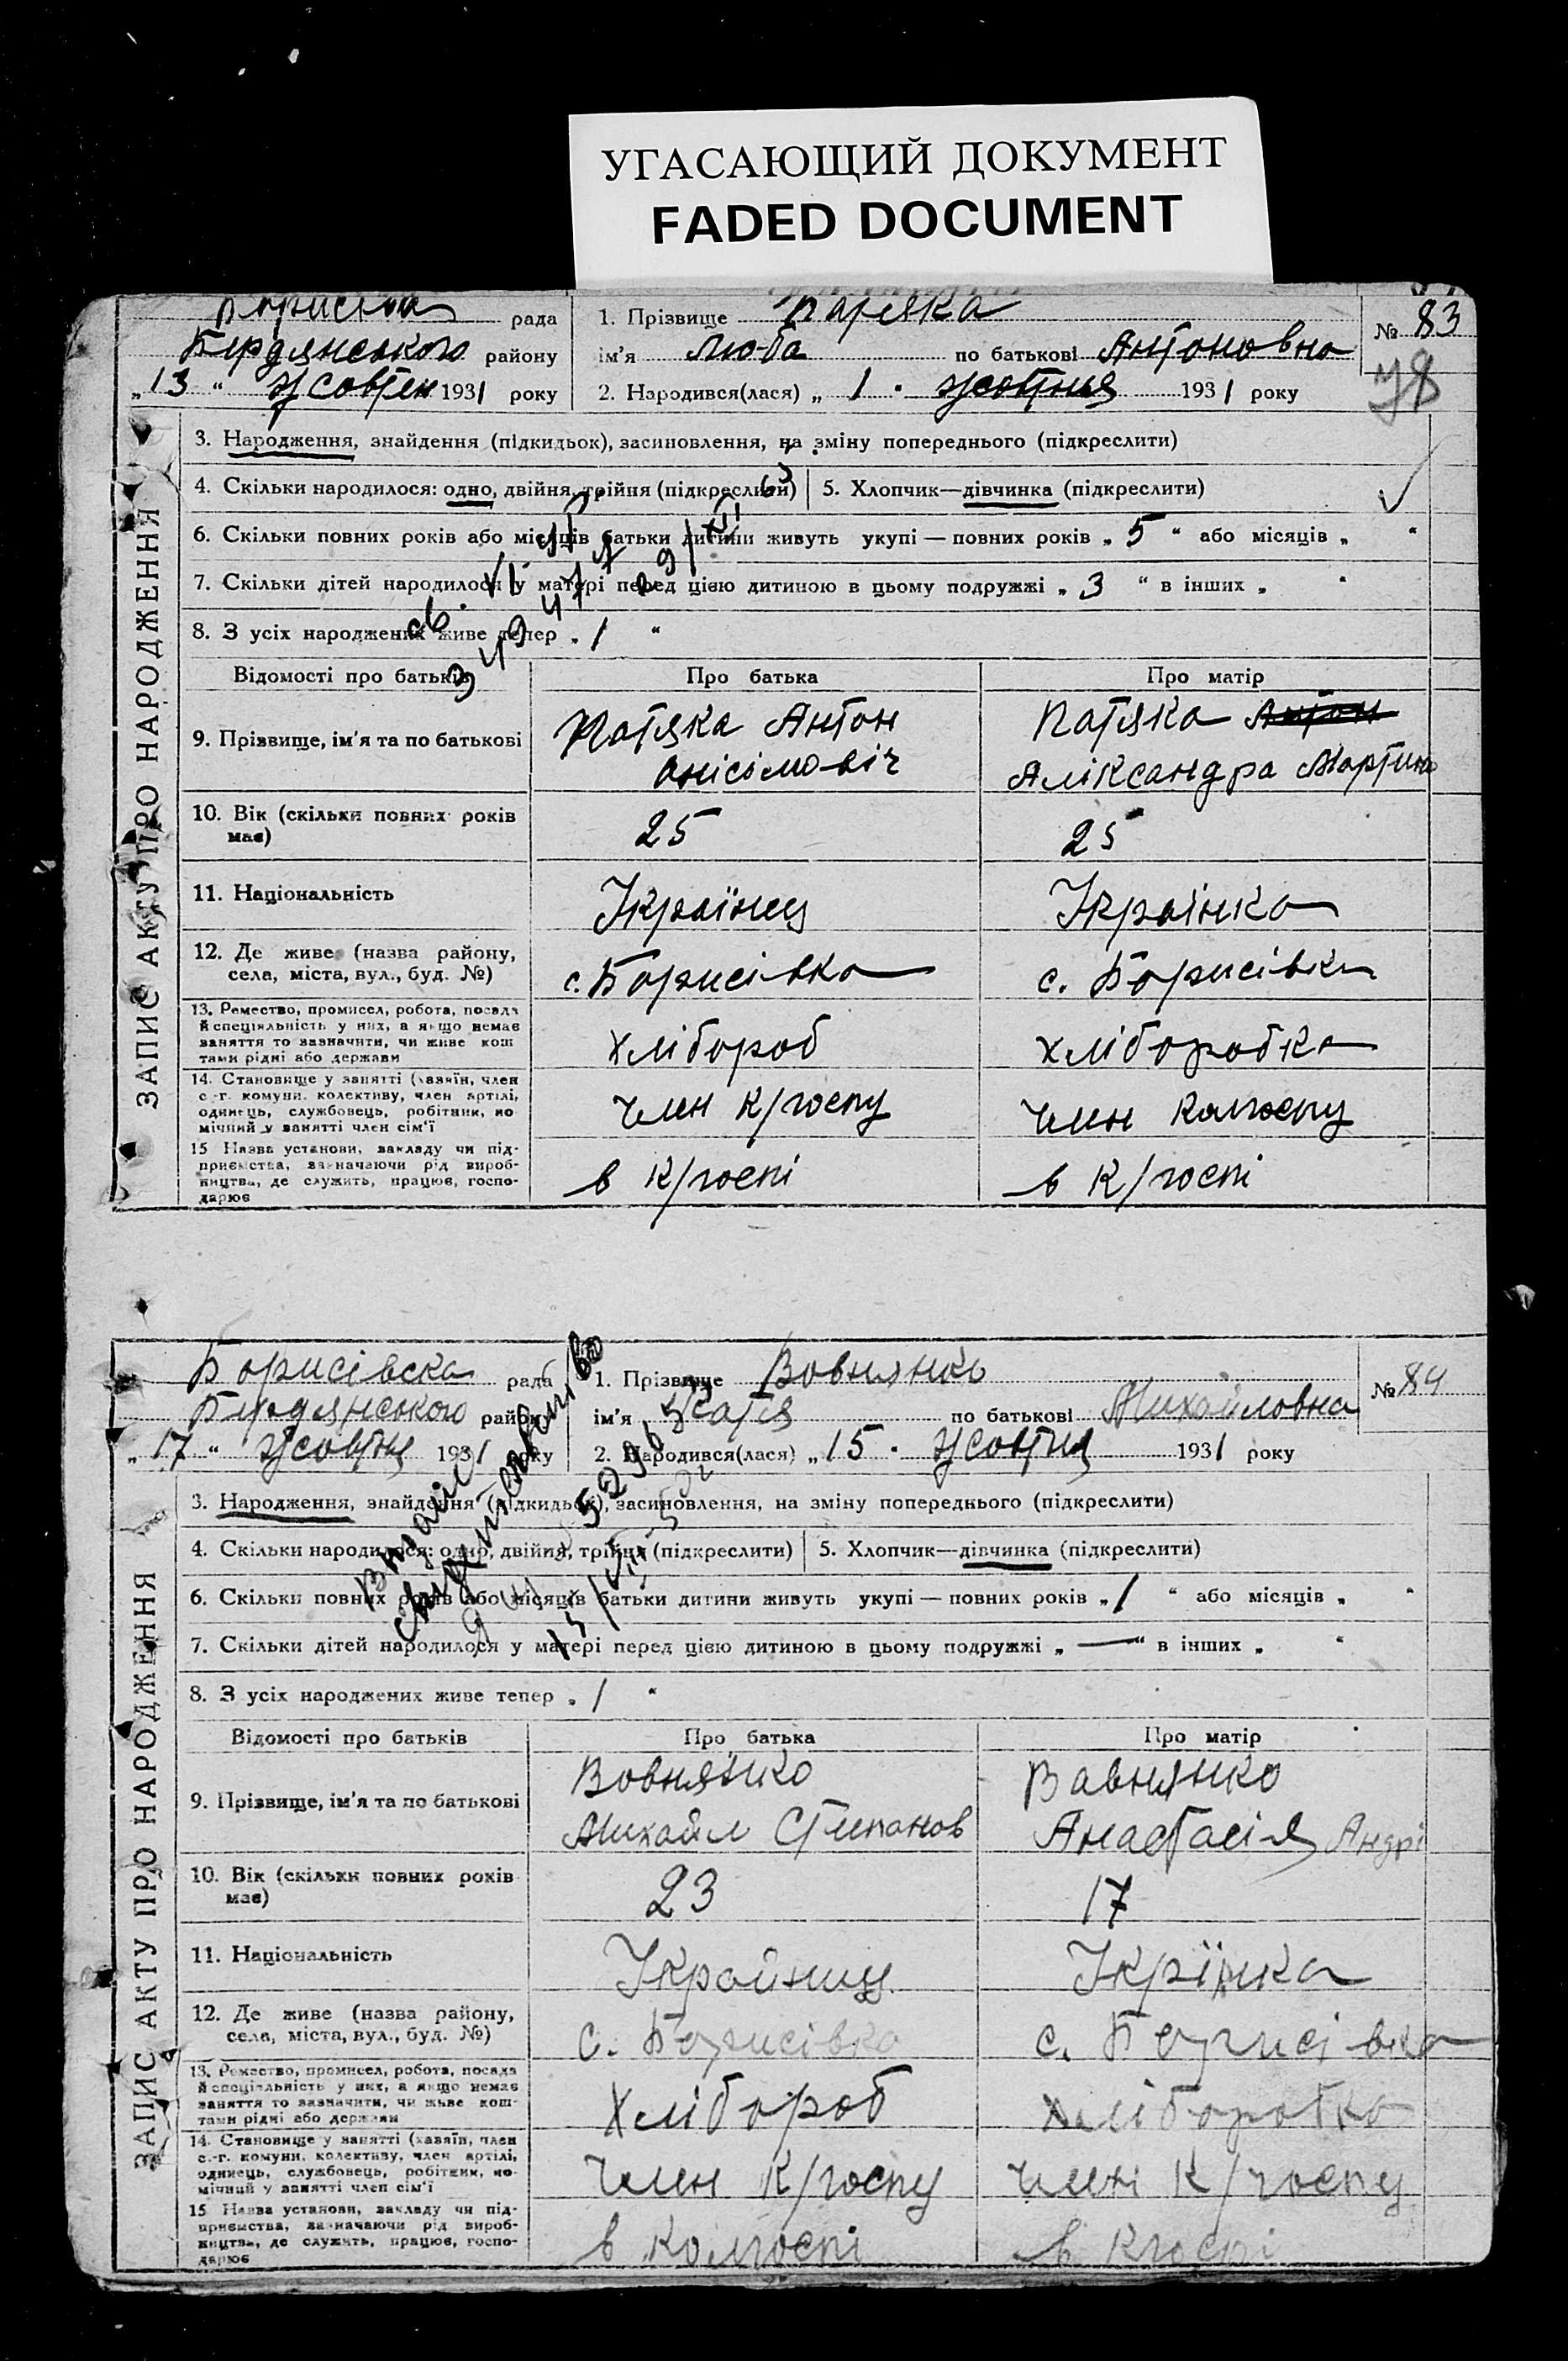 УГАСАЮЩИЙ ДОКУМЕНТ
FADED DOCUMENT
ЗАПИС АКТУ ПРО НАРОДЖЕННЯ
рада
Бердянського району
„13“ жовтен 1931 року
1. Прізвище
ім'я Люба по батькові Антоновна
2. Народився(лася) „1. жовтня 1931 року
№ 83
78
3. Народження, знайдення (підкидьок), засиновлення, на зміну попереднього (підкреслити)
4. Скільки народилося: одно, двійня, трійня (підкреслити)
5. Хлопчик—дівчинка (підкреслити)
6. Скільки повних років або місяців батьки дитини живуть укупі — повних років „5“ або місяців „ “
7. Скільки дітей народилося у матері перед цією дитиною в цьому подружжі „3“ в інших „ “
8. З усіх народжених живе тепер „1“
Відомості про батьків Про батька Про матір
9. Прізвище, ім'я та по батькові
Патяка Антон
Анісімовіч
Патяка Антон
Аліксандра Мартин
10. Вік (скільки повних років
має)
25
25
11. Національність
Українец
Украінка
12. Де живе (назва району,
села, міста, вул., буд. №)
с. Борисівка
с. Борисівка
13. Ремество, промисел, робота, посада
й спеціяльність у них, а якщо немає
заняття то зазначити, чи живе кош
тами рідні або держави
хлібороб
хліборобка
14. Становище у занятті (хазяїн, член
с.-г. комуни, колективу, член артілі,
одинець, службовець, робітник, по
мічний у занятті член сім'ї
член к/госпу
член колгоспу
15 Назва установи, закладу чи під-
приємства, зазначаючи рід вироб-
ництва, де служить, працює, госпо-
дарює
в к/госпі
в к/госпі
ЗАПИС АКТУ ПРО НАРОДЖЕННЯ
Борисівска рада
Бердянського району
„17“ жовтня 1931 року
1. Прізвище Вовнянко
ім'я Катя по батькові Михайловна
2. Народився(лася) „15. жовтня 1931 року
№ 84
3. Народження, знайдення (підкидьок), засиновлення, на зміну попереднього (підкреслити)
4. Скільки народилося: одно, двійня, трійня (підкреслити)
5. Хлопчик—дівчинка (підкреслити)
6. Скільки повних років або місяців батьки дитини живуть укупі — повних років „1“ або місяців „ “
7. Скільки дітей народилося у матері перед цією дитиною в цьому подружжі „—“ в інших „ “
8. З усіх народжених живе тепер „1“
Відомості про батьків Про батька Про матір
9. Прізвище, ім'я та по батькові
Вовнянко
Михайл Степанов
Вавнянко
Анастасія Андрі
10. Вік (скільки повних років
має)
23
17
11. Національність
Украйнец
Укрїнка
12. Де живе (назва району,
села, міста, вул., буд. №)
с. Борисівка
с. Борисівка
13. Ремество, промисел, робота, посада
й спеціяльність у них, а якщо немає
заняття то зазначити, чи живе кош-
тами рідні або держави
хлібороб
хліборобка
14. Становище у занятті (хазяїн, член
с.-г. комуни, колективу, член артілі,
одинець, службовець, робітник, по-
мічний у занятті член сім'ї
член к/госпу
член к/госпу
15 Назва установи, закладу чи під-
приємства, зазначаючи рід вироб-
ництва, де служить, працює, госпо-
дарює
в колгоспі
в кгоспі